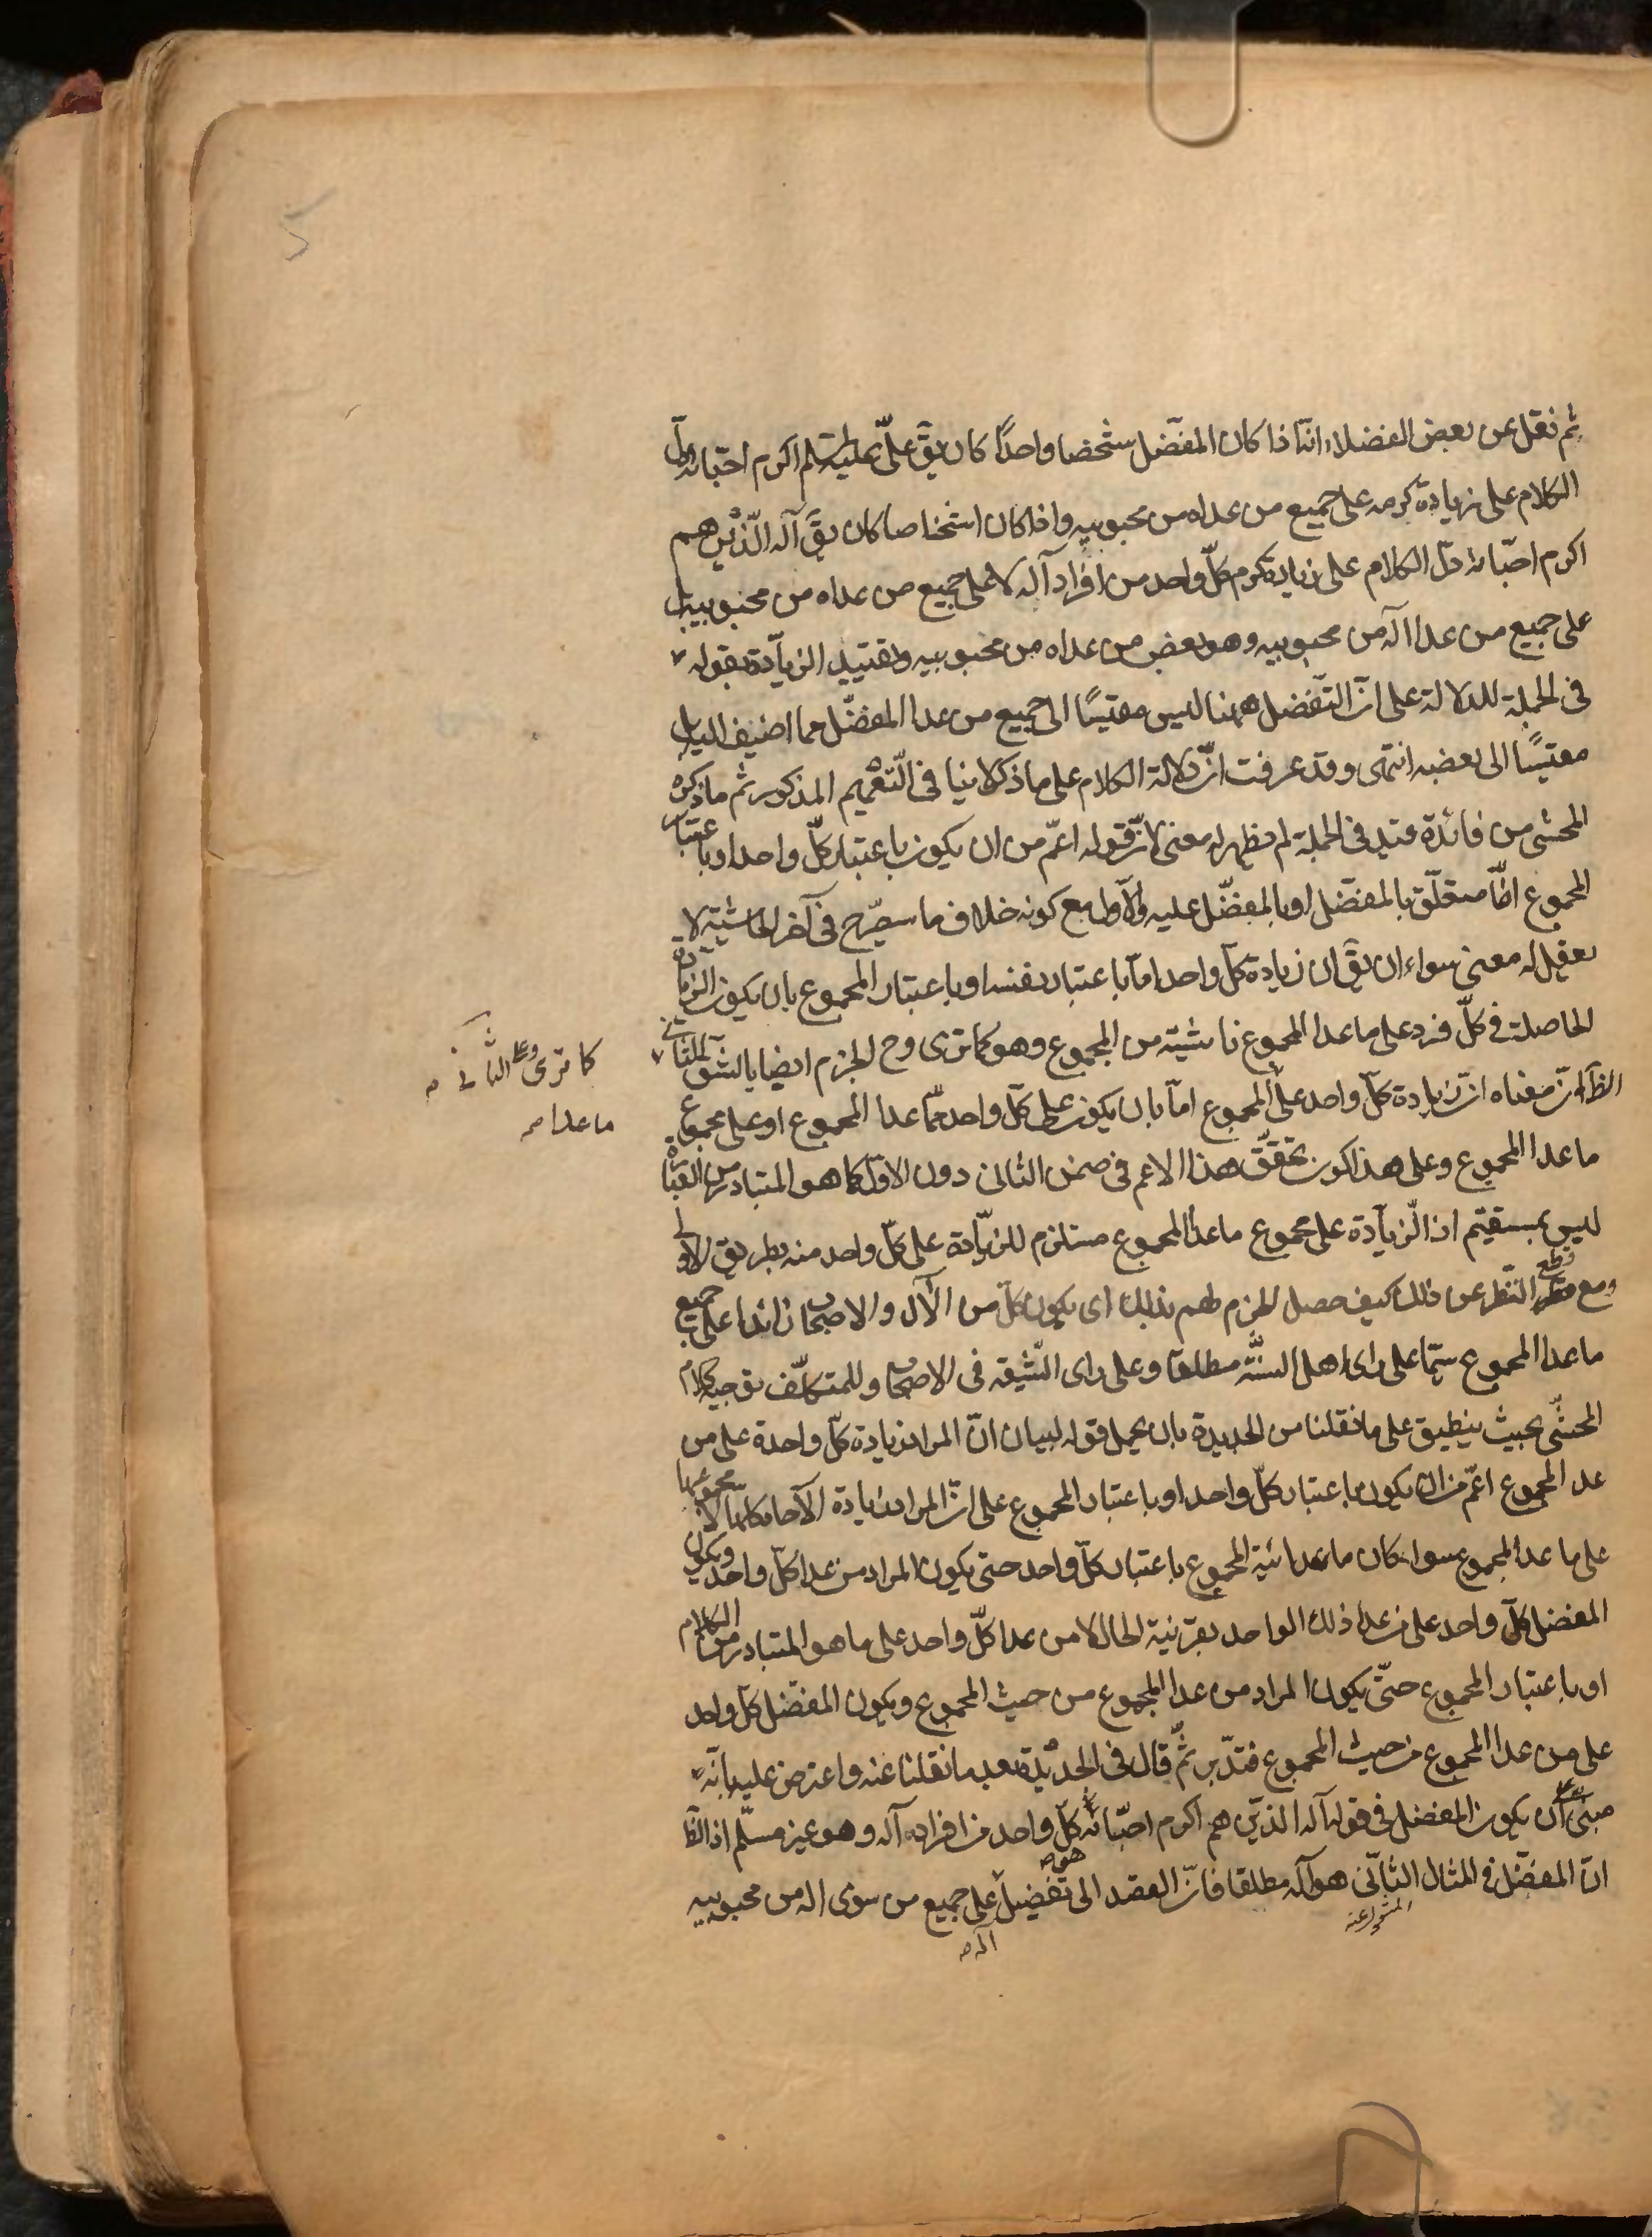 ثم نقل عن بعض الفضلاء انه اذا كان المفضل شخصا واحدًا كان يقَ علىّ عليه السلم اكرم احبائه دلّ
الكلام على زيادة كرمه على جميع من عداه من محبوبيه واذا كان اشخاصا كان يقَ آله الّذين هم
اكرم احبّائه دلّ الكلام على زيادة كرم كلّ واحد من افراد آله لا على جميع من عداه من محبوبيه بل
على جميع من عدا آله من محبوبيه وهو بعض من عداه من محبوبيه وتقييد الزيادة بقوله
فى الجملة للدلالة على انّ التّفضل ههنا ليس مقيسًا الى جميع من عدا المفضّل مما اضيف اليه بل
مقيسًا الى بعضه انتهى وقد عرفت انّ دلالة الكلام على ما ذكر لا ينافى التّعميم المذكور ثم ما ذكره
المحشى من فائدة قيد فى الجملة لم يظهر له معنى لانّ قوله اعمّ من ان يكون باعتبار كلّ واحد او باعتبار
المجموع امّا متعلّق بالمفضّل او بالمفضّل عليه والاوّل مع كونه خلاف ما سيصّرح فى آخر الحاشية لا
يعقل له معنى سواء ان يقَ ان زيادة كلّ واحد امّا باعتبار نفسه او باعتبار المجموع بان يكون الزيادة
الحاصلة فى كلّ فرد على ما عدا المجموع ناشية من المجموع وهو كما ترى وح الجزم ايضا بالشق الثانى
الظّ انّ معناه انّ زيادة كلّ واحد على المجموع امّا بان يكون على كلّ واحد ممّا عدا المجموع او على مجموع
ما عدا المجموع وعلى هذا كون تحقّق هذا الاعم فى ضمن الثانى دون الاوّل كما هو المتبادر من العبارة
ليس بمستقيم اذ الّزيادة على مجموع ما عدا المجموع مستلزم للزيّادة على كلّ واحد منه بطريق الاولى
ومع قطع النّظر عن ذلك كيف حصل الجزم لهم بذلك اى يكون كلّ من الآل والاصحاب زائدا على جميع
ما عدا المجموع سيّما على راى اهل السنّة مطلقا وعلى راى الشّيعة فى الاصحاب وللمتكلّف توجيه كلام
المحشّى بحيث ينطبق على ما نقلنا من الجديدة بان يحمل قوله لبيان انّ المراد زيادة كلّ واحدة على من
عدا المجموع اعمّ من ان يكون باعتبار كلّ واحد او باعتبار المجموع على انّ المراد زيادة الآحاد كلّها لا مجموعها
على ما عدا المجموع سواء كان ما عدائية المجموع باعتبار كلّ واحد حتى يكون المراد من عدا كلّ واحد ويكون
المفضل كلّ واحد على من عدا ذلك الواحد بقرنية الحال لا من عدا كلّ واحد على ما هو المتبادر من الكلام
او باعتبار المجموع حتّى يكون المراد من عدا المجموع من حيث المجموع ويكون المفضّل كلّ واحد
على من عدا المجموع من حيث المجموع فتدّبر ثمّ قال فى الجديدة بعد ما نقلنا عنه واعترض عليه بانّه
مبنى على ان يكون المفضل فى قوله آله الذين هم اكرم احبّائه كلّ واحد من افراد آله وهو غير مسلّم اذ الظّ
انّ المفضّل فى المثال الثانى هو آله مطلقا فانّ القصد الى تفضيل على جميع من سوى اله من محبوبيه
هو
آله
كما ترى وعلى الثانى
ما عدا